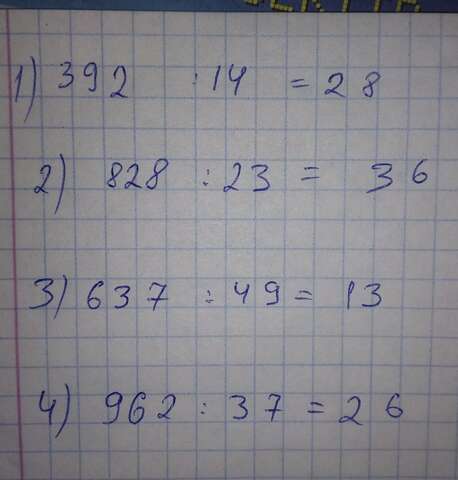 1) 392 : 14 = 28
2) 828 : 23 = 36
3) 637 : 49 = 13
4) 962 : 37 = 26